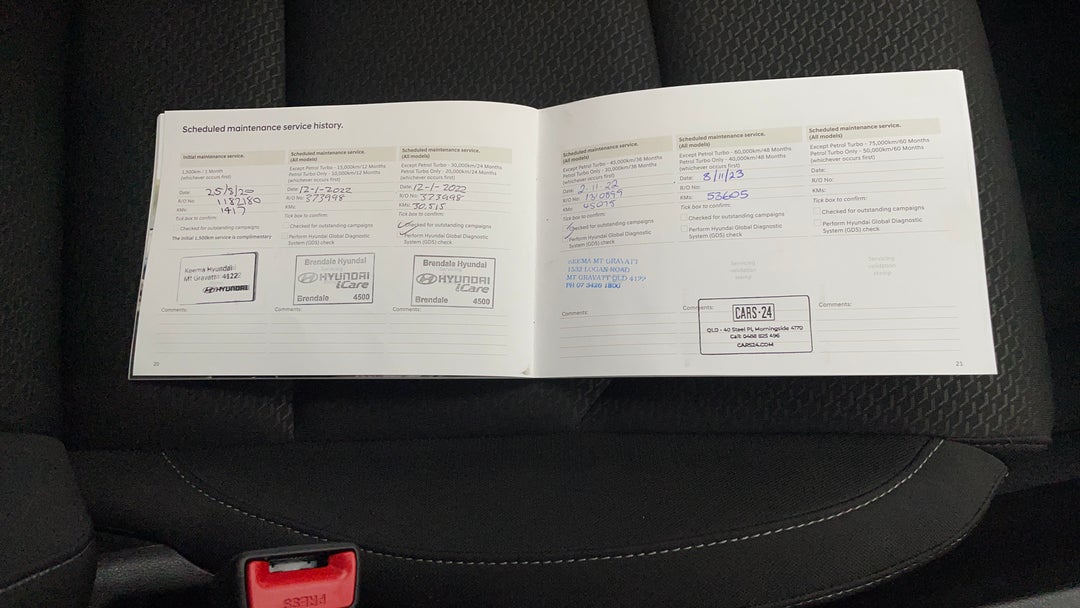 Scheduled maintenance service history.
Initial maintenance service.
1,500km / 1 Month
(whichever occurs first)
Date: 25/8/20
R/O No: 1182180
KMs: 1417
Tick box to confirm:
Checked for outstanding campaigns
The initial 1,500km service is complimentary
Keema Hyundai
Mt Gravatt 4122
HYUNDAI
Comments:
20
Scheduled maintenance service.
(All models)
Except Petrol Turbo - 15,000km/12 Months
Petrol Turbo Only - 10,000km/12 Months
(whichever occurs first)
Date: 12-1-2022
R/O No: 373998
KMs:
Tick box to confirm:
Checked for outstanding campaigns
Perform Hyundai Global Diagnostic
System (GDS) check
Brendale Hyundai
HYUNDAI
iCare
Brendale 4500
Comments:
Scheduled maintenance service.
(All models)
Except Petrol Turbo - 30,000km/24 Months
Petrol Turbo Only - 20,000km/24 Months
(whichever occurs first)
Date: 12-1-2022
R/O No: 373998
KMs: 30,515
Tick box to confirm:
Checked for outstanding campaigns
Perform Hyundai Global Diagnostic
System (GDS) check
Brendale Hyundai
HYUNDAI
iCare
Brendale 4500
Comments:
Scheduled maintenance service.
(All models)
Except Petrol Turbo - 45,000km/36 Months
Petrol Turbo Only - 30,000km/36 Months
(whichever occurs first)
Date: 2.11.22
R/O No: 1310899
KMs: 45075
Tick box to confirm:
Checked for outstanding campaigns
Perform Hyundai Global Diagnostic
System (GDS) check
KEEMA MT GRAVATT
1532 LOGAN ROAD
MT GRAVATT QLD 4122
PH 07 3420 1800
Comments:
Scheduled maintenance service.
(All models)
Except Petrol Turbo - 60,000km/48 Months
Petrol Turbo Only - 40,000km/48 Months
(whichever occurs first)
Date: 8/11/23
R/O No:
KMs: 53605
Tick box to confirm:
Checked for outstanding campaigns
Perform Hyundai Global Diagnostic
System (GDS) check
Servicing
validation
stamp
Comments:
CARS·24
QLD - 40 Steel Pl, Morningside 4170
Call: 0488 825 496
CARS24.COM
Scheduled maintenance service.
(All models)
Except Petrol Turbo - 75,000km/60 Months
Petrol Turbo Only - 50,000km/60 Months
(whichever occurs first)
Date:
R/O No:
KMs:
Tick box to confirm:
Checked for outstanding campaigns
Perform Hyundai Global Diagnostic
System (GDS) check
Servicing
validation
stamp
Comments:
21
PRESS